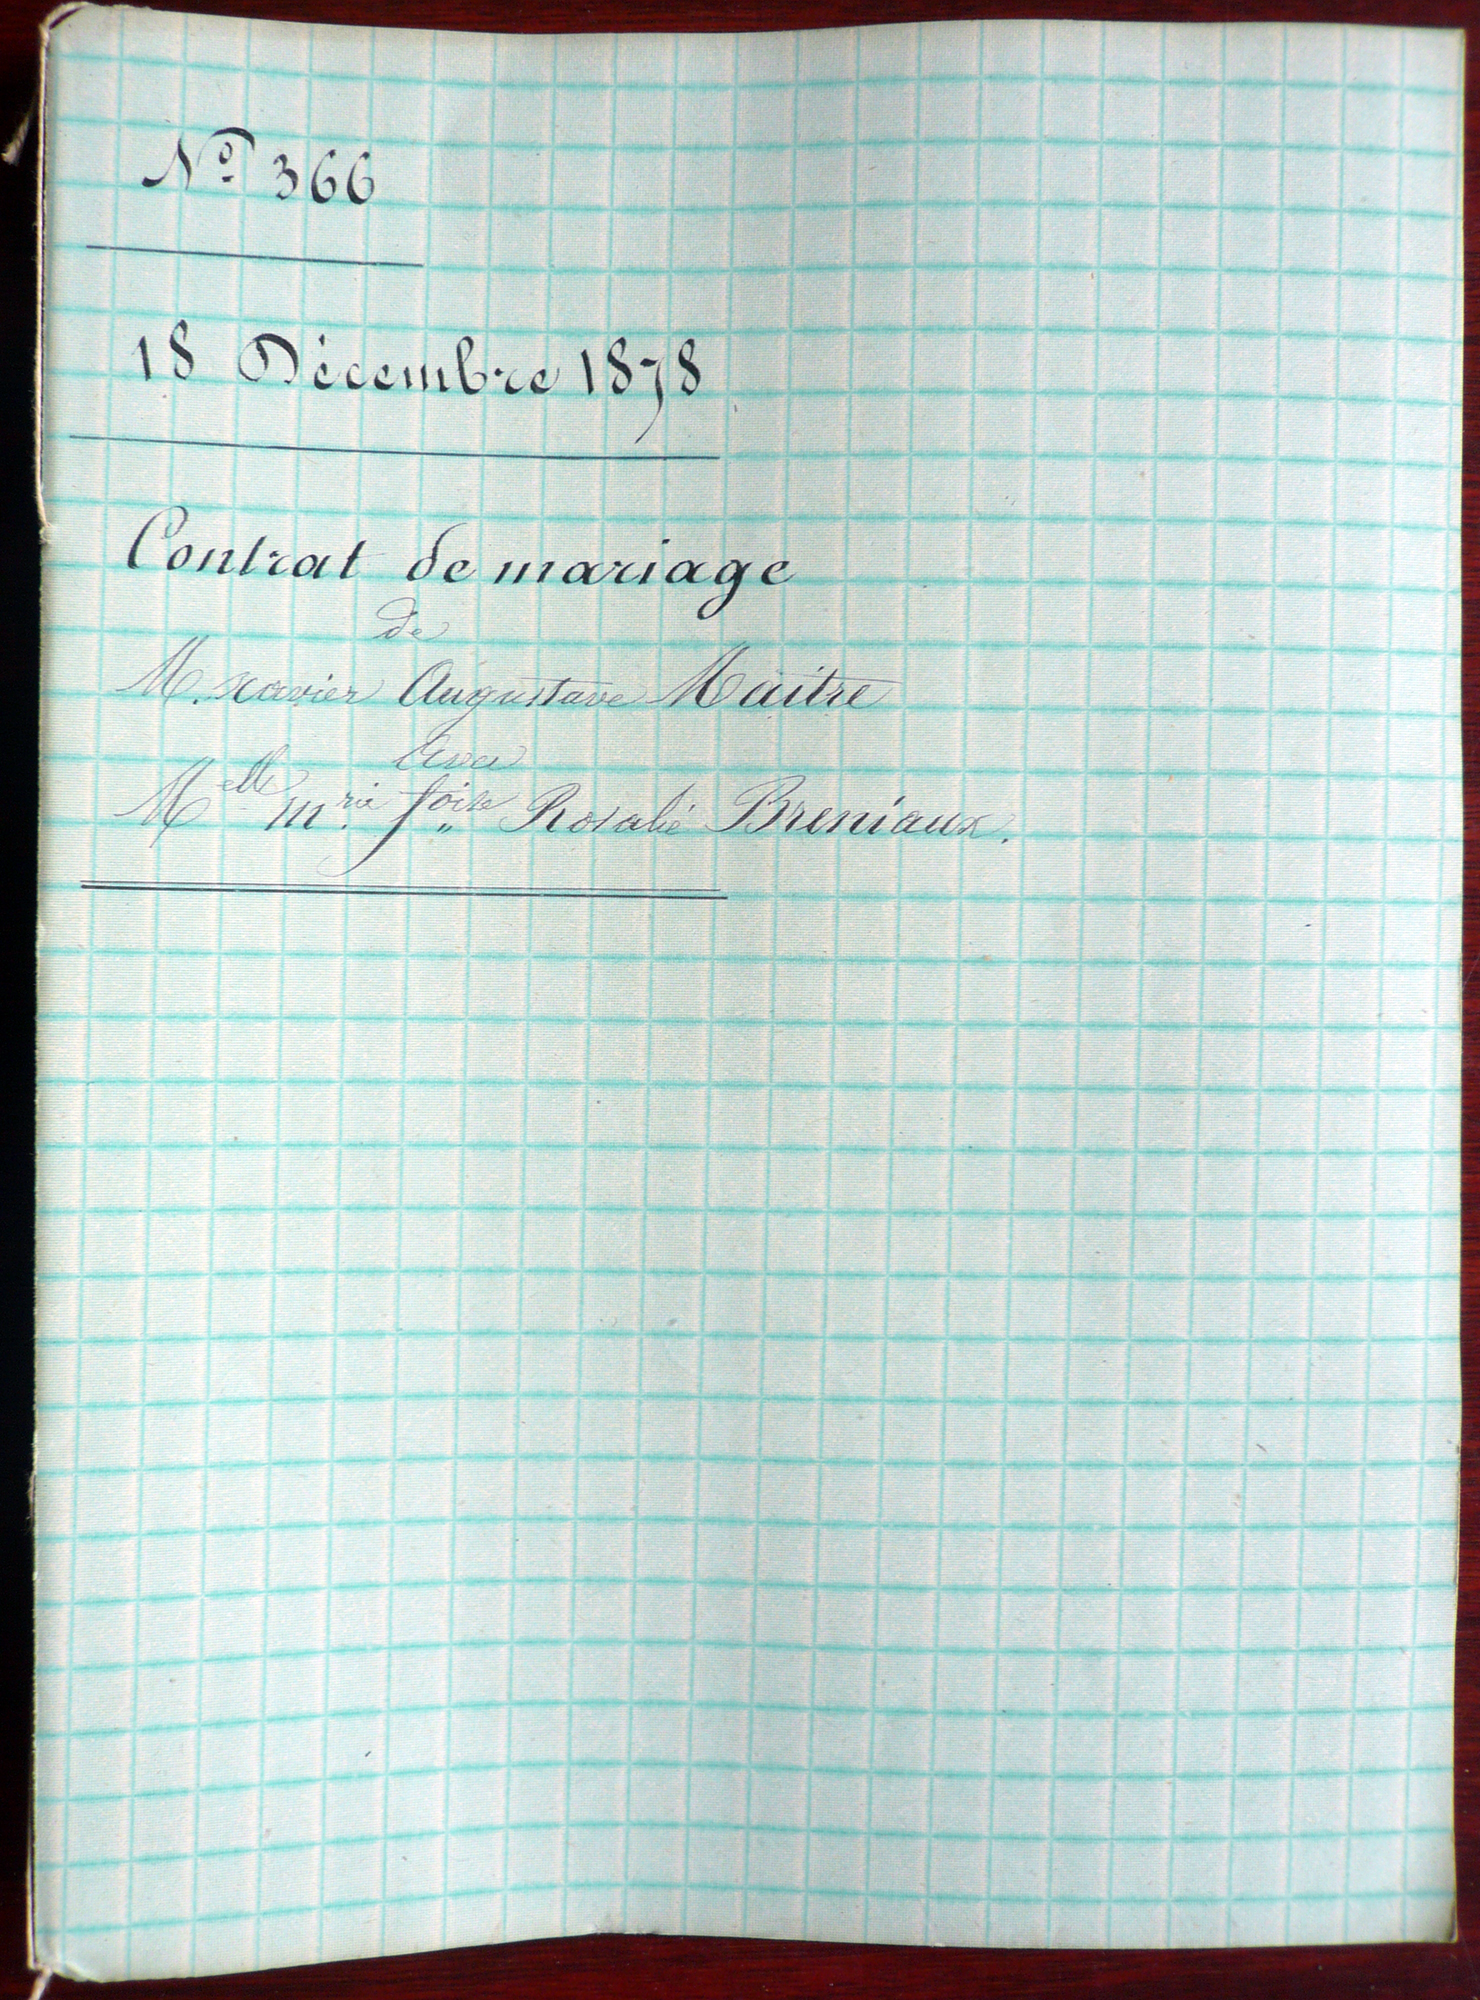 No 366
18 Décembre 1878
Contrat de mariage
de
M. Xavier Augustave Maitre
Avec
Melle Mrie foise Rosalie Breniaux.